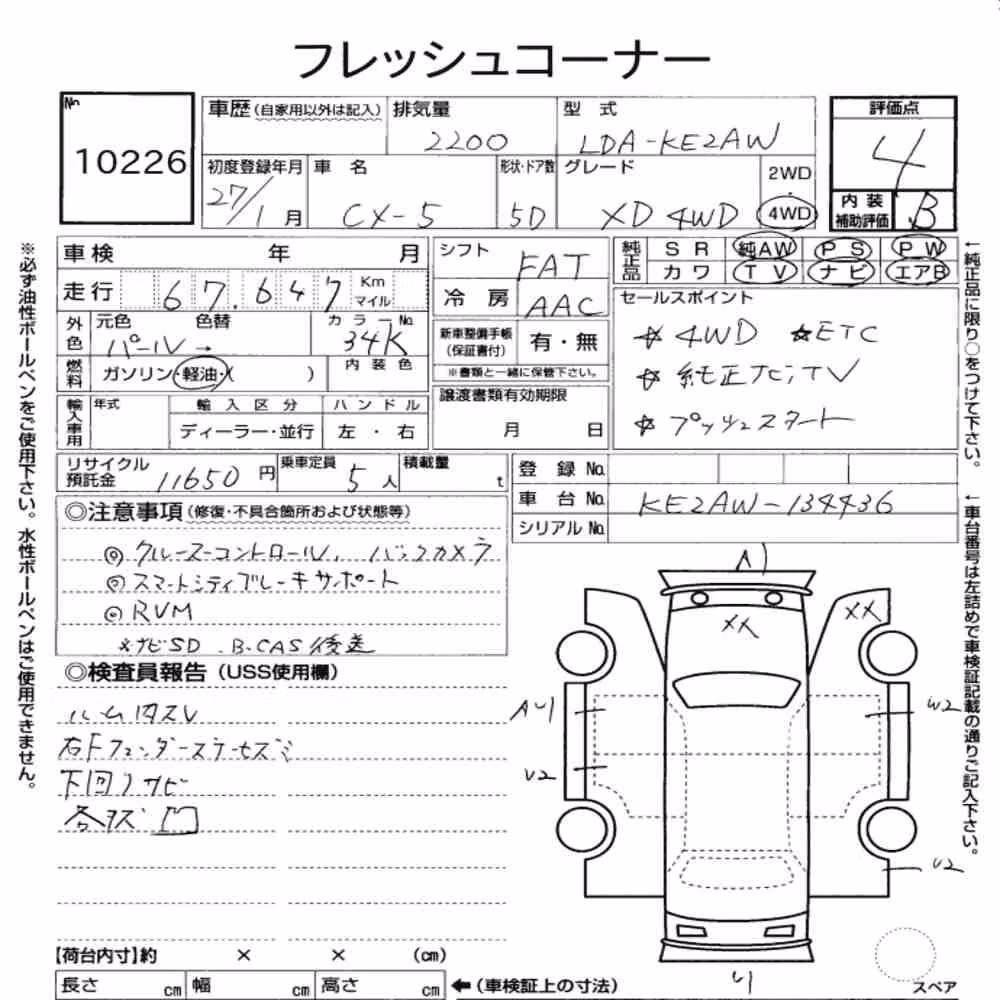 フレッシュコーナー
No 10226
車歴(自家用以外は記入) 排気量 型式 評価点
2200 LDA-KE2AW 4
初度登録年月 車名 形状・ドア数 グレード 2WD・4WD
27/1月 CX-5 5D XD 4WD
内装補助評価 B
車検 年 月
走行 67.647 Km マイル
外色 元色 色替 カラーNo.
パール→ 34K
燃料 ガソリン・軽油・( ) 内装色
輸入車用 年式 輸入区分 ハンドル
ディーラー・並行 左・右
シフト FAT
冷房 AAC
新車整備手帳(保証書付) 有・無
※書類と一緒に保管下さい。
譲渡書類有効期限
月 日
純正品 SR 純AW PS PW
カワ TV ナビ エアB
セールスポイント
☆4WD ☆ETC
☆純正ナビ,TV
☆プッシュスタート
リサイクル預託金 11650円 乗車定員 5人 積載量 t
登録No.
車台No. KE2AW-134436
シリアルNo.
◎注意事項(修復・不具合箇所および状態等)
◎クルーズコントロール, バックカメラ
◎スマートシティブレーキサポート
◎RVM
※ナビSD .B-CAS後送
◎検査員報告(USS使用欄)
ルーム内スレ
右Fフェンダーステーセズミ
下回りサビ
各キズ凹
A1
XX XX
A4 W2
U2
U2
【荷台内寸】約 × × (cm)
長さ cm 幅 cm 高さ cm ←(車検証上の寸法)
スペア
※必ず油性ボールペンをご使用下さい。水性ボールペンはご使用できません。
←純正品に限り○をつけて下さい。
←車台番号は左詰めで車検証記載の通りご記入下さい。